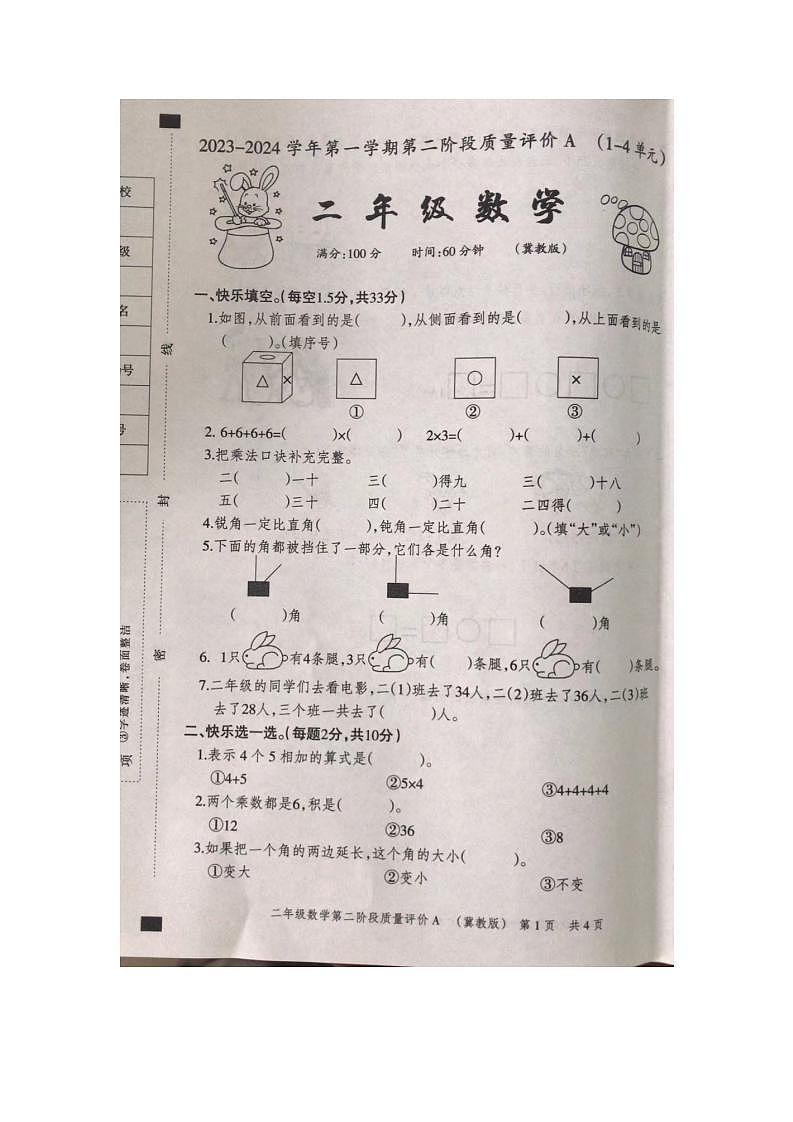 2023-2024 学年第一学期第二阶段质量评价 A （1-4 单元）
二 年 级 数 学
满分:100 分 时间:60 分钟 （冀教版）
一、快乐填空。（每空1.5分,共33分）
1.如图,从前面看到的是（ ）,从侧面看到的是（ ）,从上面看到的是
（ ）。（填序号）
△ × △ ○ ×
① ② ③
2. 6+6+6+6=( )×( ) 2×3=( )+( )+( )
3.把乘法口诀补充完整。
二（ ）一十 三（ ）得九 三（ ）十八
五（ ）三十 四（ ）二十 二四得（ ）
4.锐角一定比直角（ ）,钝角一定比直角（ ）。（填“大”或“小”）
5.下面的角都被挡住了一部分,它们各是什么角?
（ ）角 （ ）角 （ ）角
6. 1只有4条腿,3只有（ ）条腿,6只有（ ）条腿。
7.二年级的同学们去看电影,二(1)班去了34人,二(2)班去了36人,二(3)班
去了28人,三个班一共去了（ ）人。
二、快乐选一选。（每题2分,共10分）
1.表示 4 个 5 相加的算式是（ ）。
①4+5 ②5×4 ③4+4+4+4
2.两个乘数都是6,积是（ ）。
①12 ②36 ③8
3.如果把一个角的两边延长,这个角的大小（ ）。
①变大 ②变小 ③不变
二年级数学第二阶段质量评价 A （冀教版） 第 1 页 共 4 页
校
级
名
号
号
线
封
密
③字迹清晰,卷面整洁
项